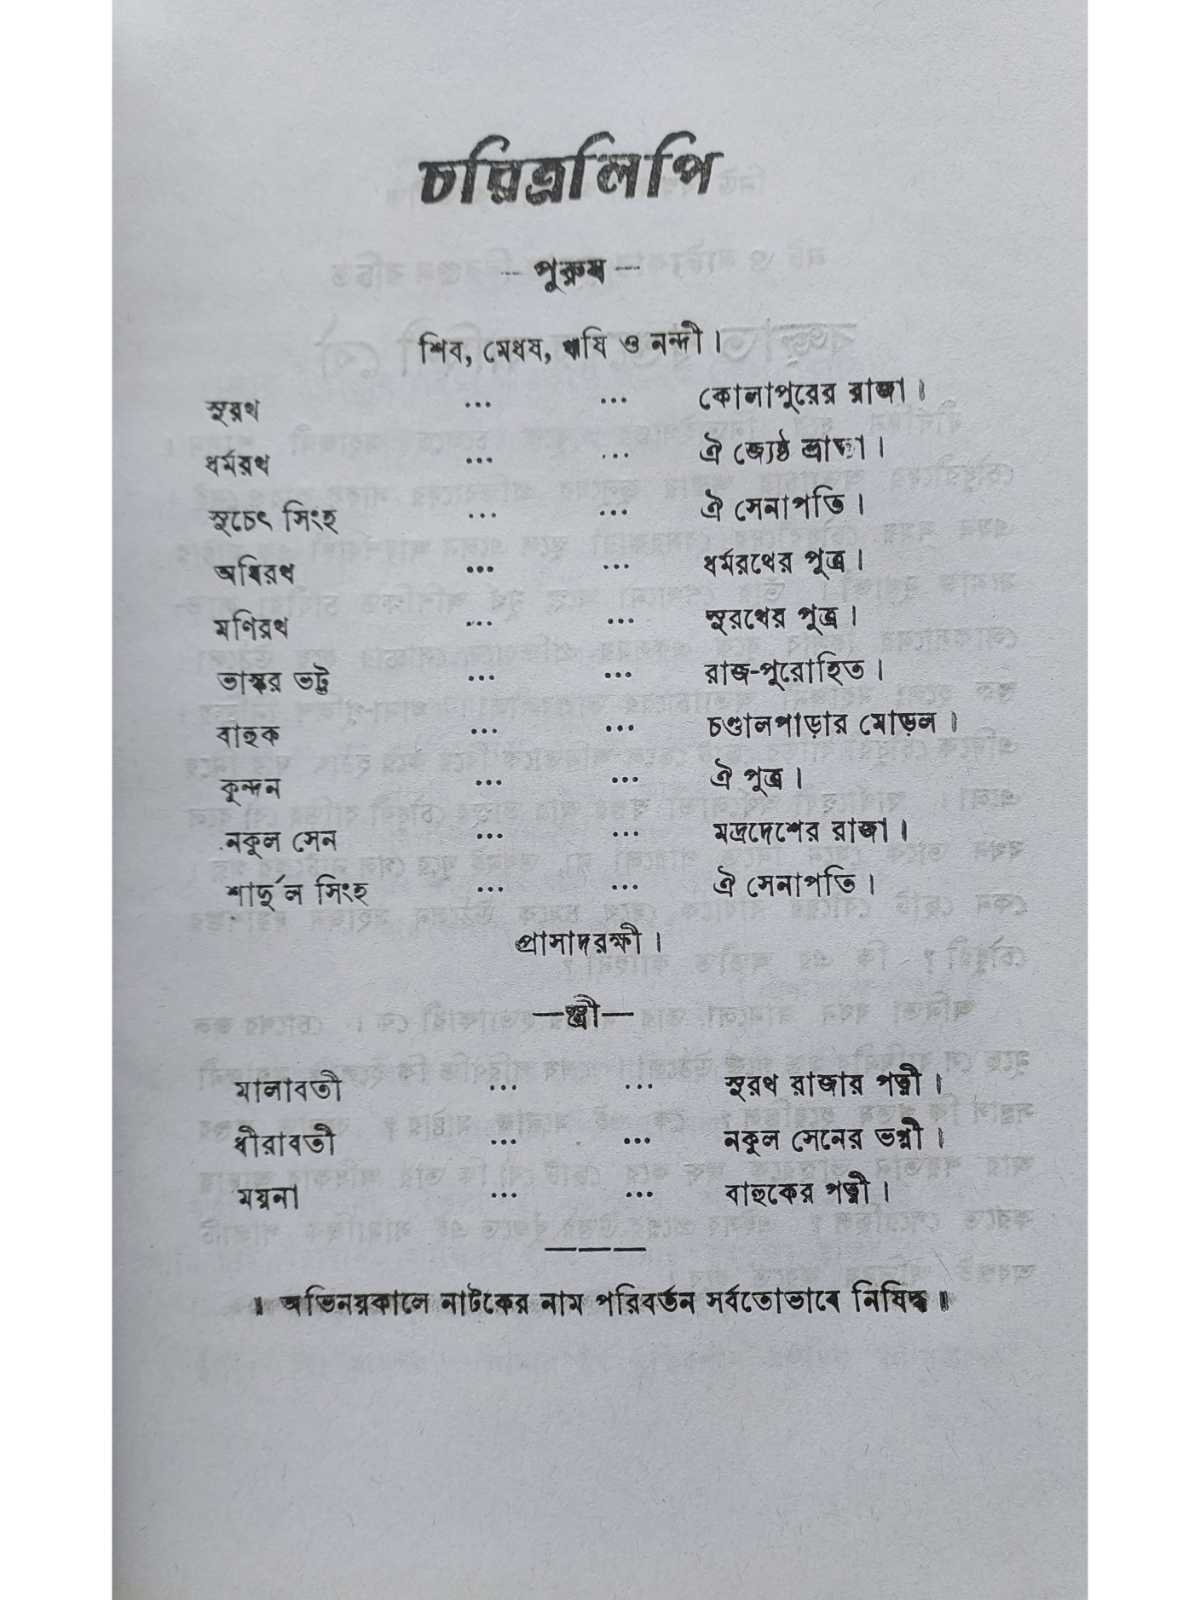 চরিত্রলিপি
— পুরুষ —
শিব, মেধষ, ঋষি ও নন্দী ।
সুরথ ... ... কোলাপুরের রাজা ।
ধর্মরথ ... ... ঐ জ্যেষ্ঠ ভ্রাতা ।
সুচেৎ সিংহ ... ... ঐ সেনাপতি ।
অধিরথ ... ... ধর্মরথের পুত্র ।
মণিরথ ... ... সুরথের পুত্র ।
ভাস্কর ভট্ট ... ... রাজ-পুরোহিত ।
বাহুক ... ... চণ্ডালপাড়ার মোড়ল ।
কুন্দন ... ... ঐ পুত্র ।
নকুল সেন ... ... মদ্রদেশের রাজা ।
শার্দুল সিংহ ... ... ঐ সেনাপতি ।
প্রাসাদরক্ষী ।
—স্ত্রী—
মালাবতী ... ... সুরথ রাজার পত্নী ।
ধীরাবতী ... ... নকুল সেনের ভগ্নী ।
ময়না ... ... বাহুকের পত্নী ।
। অভিনয়কালে নাটকের নাম পরিবর্তন সর্বতোভাবে নিষিদ্ধ ।